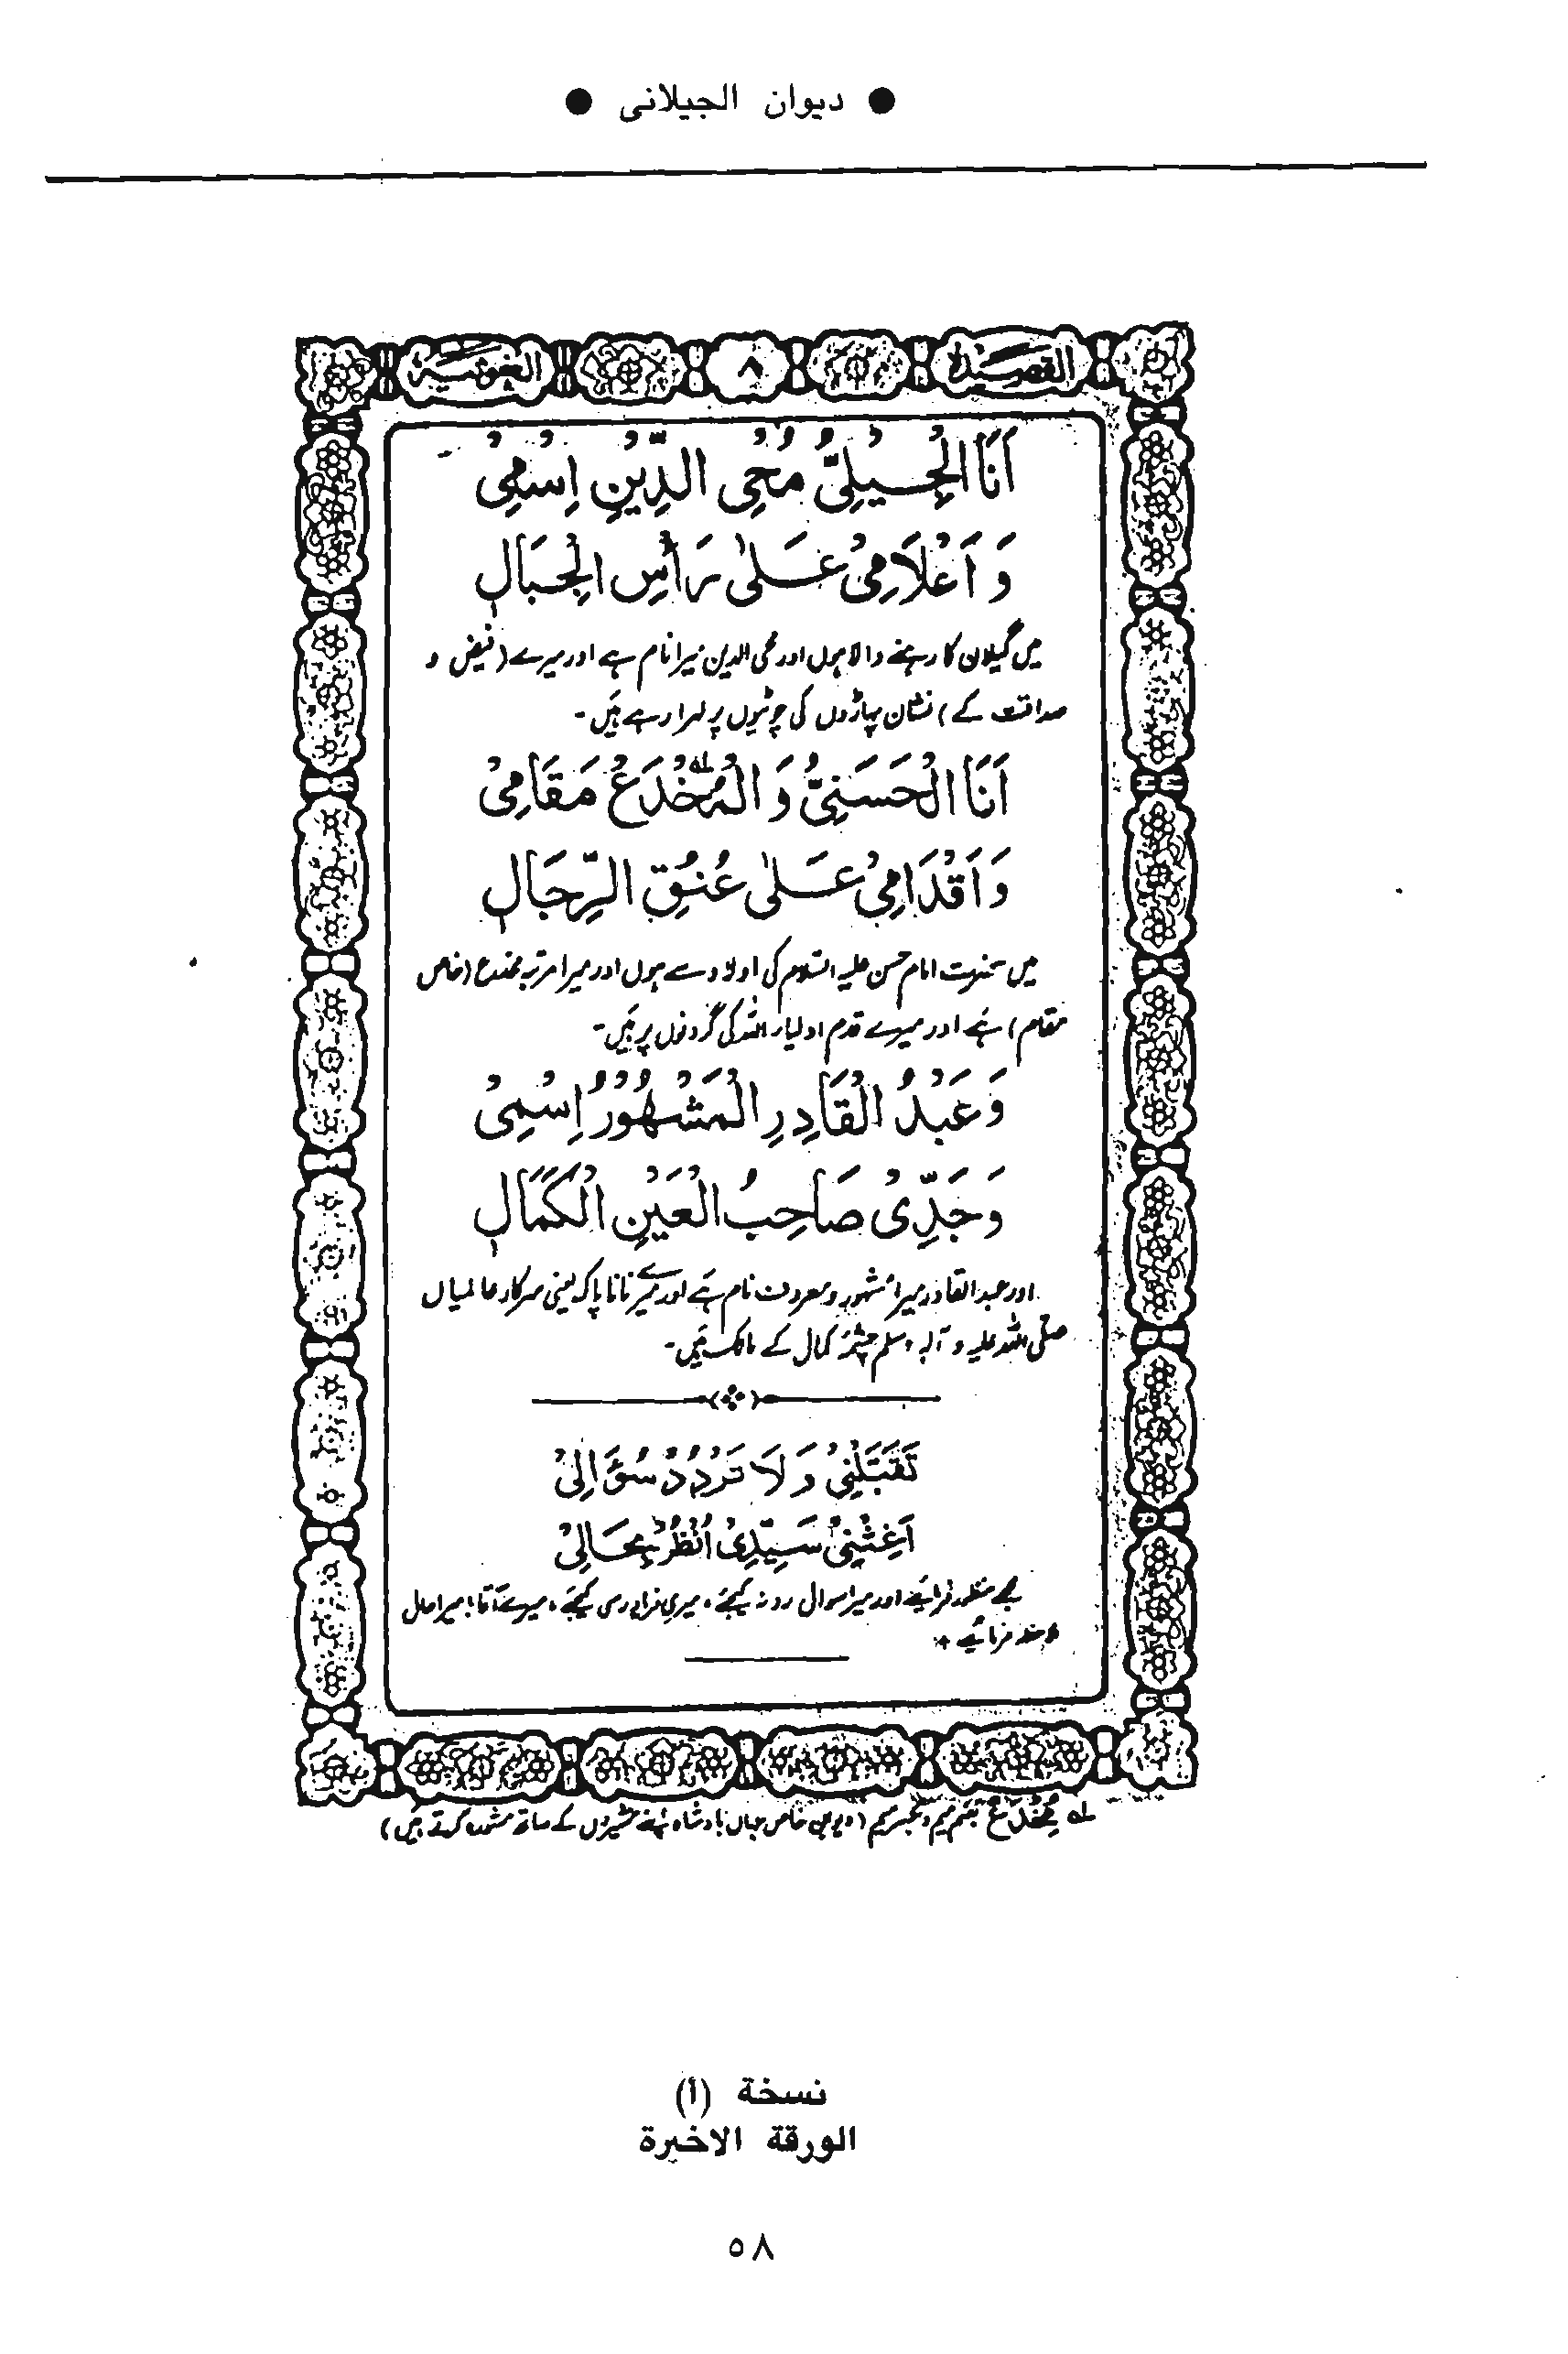 ● ديوان الجيلانى ●
القصيدة ٨ الغوثية
اَنَا الْجِيْلِيُّ مُحْىِ الدِّيْنِ اِسْمِىْ
وَ اَعْلَامِىْ عَلٰى رَأْسِ الْجِبَالٖ
میں گیلان کا رہنے والا ہوں اور محی الدین میرا نام ہے اور میرے (فیض و
صداقت کے) نشان پہاڑوں کی چوٹیوں پر لہرا رہے ہیں۔
اَنَا الْحَسَنِىُّ وَ الْمُخْدَعْ لہ مَقَامِىْ
وَاَقْدَامِىْ عَلٰى عُنُقِ الرِّجَالٖ
میں حضرت امام حسن علیہ السلام کی اولاد سے ہوں اور میرا مرتبہ مخدع (خاص
مقام) ہے اور میرے قدم اولیاء اللہ کی گردنوں پر ہیں۔
وَعَبْدُ الْقَادِرِ الْمَشْهُوْرُ اِسْمِىْ
وَجَدِّىْ صَاحِبُ الْعَيْنِ الْكَمَالٖ
اور عبدالقادر میرا مشہور و معروف نام ہے اور میرے نانا پاک یعنی سرکار عالمیاں
صلی اللہ علیہ و آلہ وسلم چشمۂ کمال کے مالک ہیں۔
تَقَبَّلْنِىْ وَلَا تَرْدُدْ سُؤَالِىْ
اَغِثْنِىْ سَيِّدِىْ اُنْظُرْ بِحَالِىْ
مجھے منظور فرمائیے اور میرا سوال رد نہ کیجئے، میری فریاد رسی کیجئے، میرے آقا! میرا حال
ملاحظہ فرمائیے
لہ مُخْدَعْ بضم میم و بکسر میم (وہ مقام خاص جہاں بادشاہ اپنے مشیروں کے ساتھ مشورہ کرتے ہیں)
نسخة (أ)
الورقة الاخيرة
٥٨